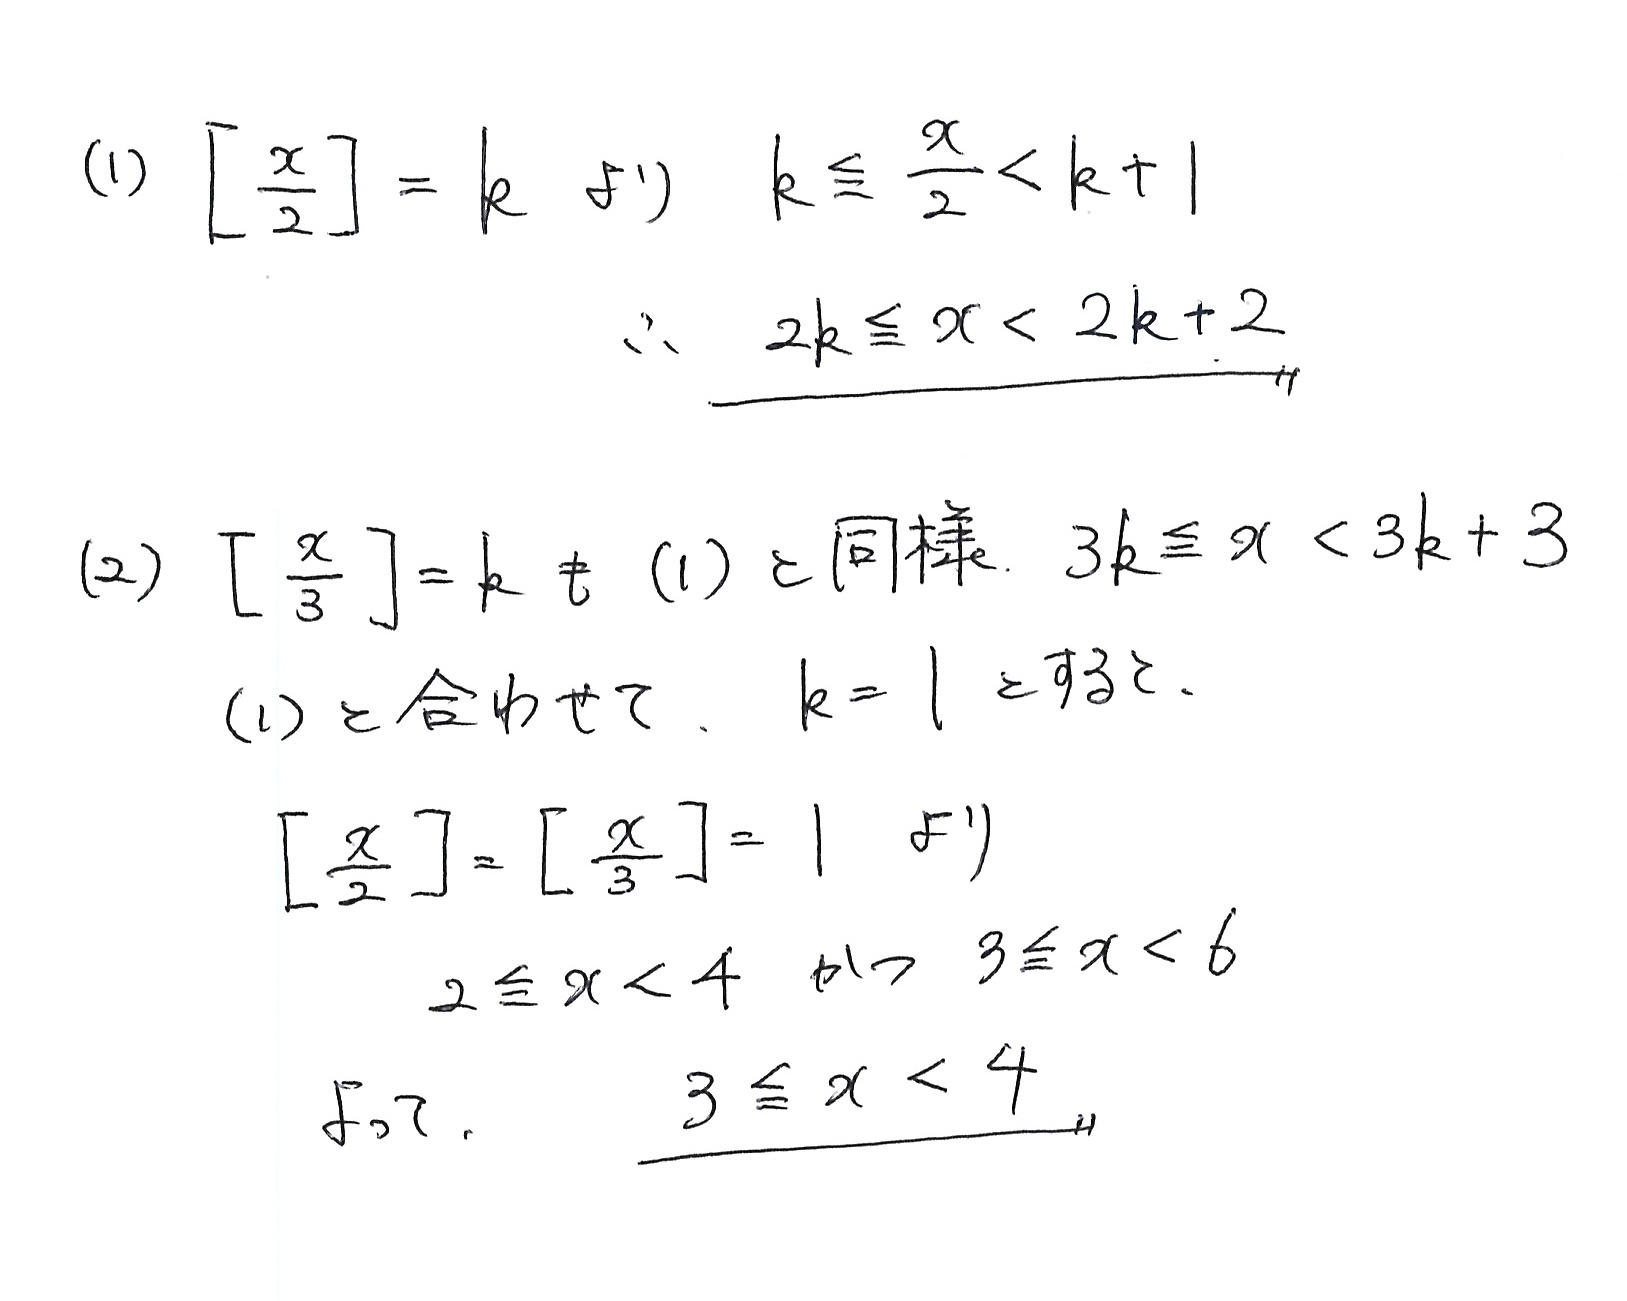 (1) [x/2] = k より k ≦ x/2 < k+1
∴ 2k ≦ x < 2k+2
(2) [x/3] = k も (1) と同様. 3k ≦ x < 3k+3
(1) と合わせて、 k = 1 とすると、
[x/2] = [x/3] = 1 より
2 ≦ x < 4 かつ 3 ≦ x < 6
よって、 3 ≦ x < 4